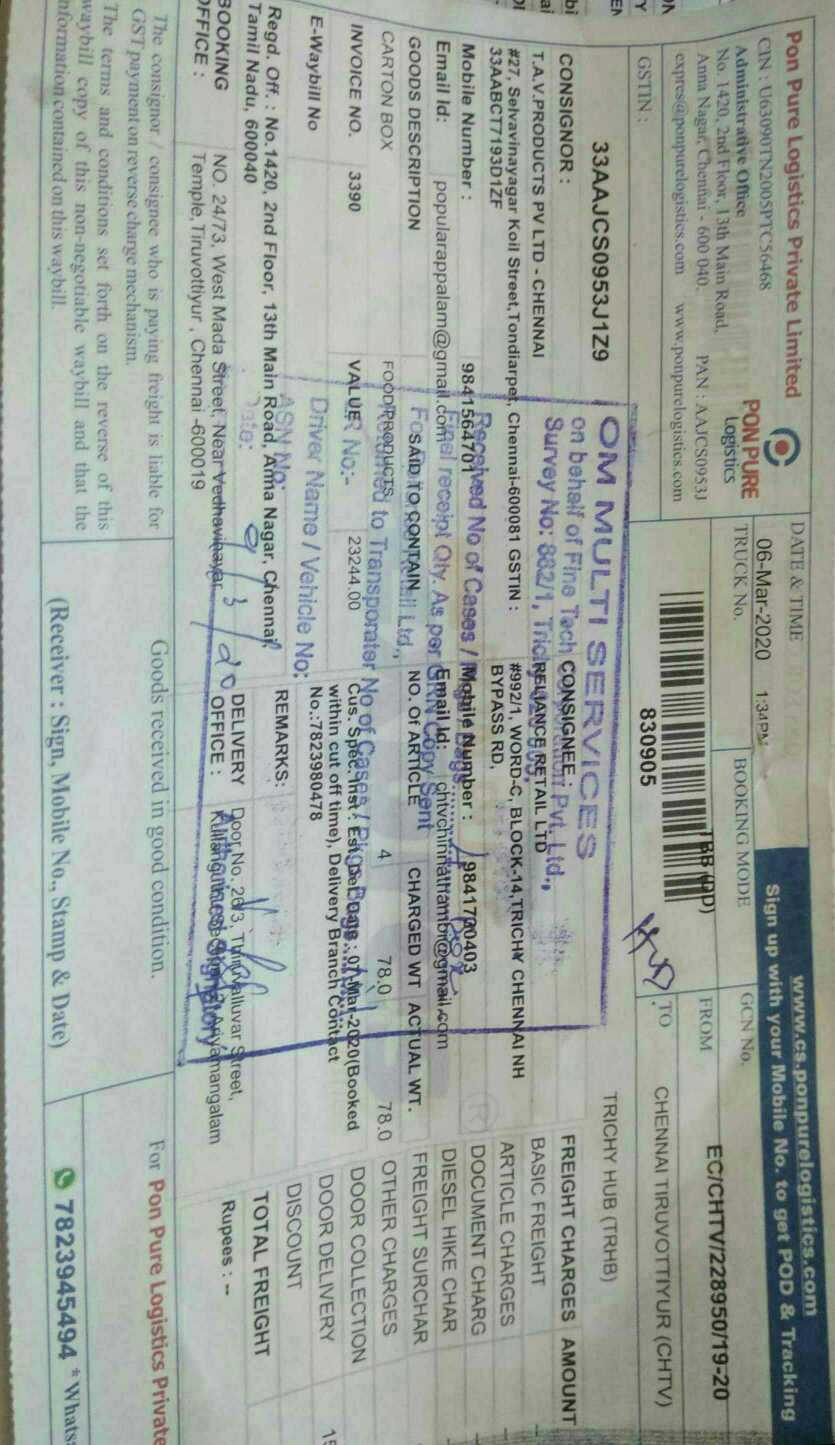 www.cs.ponpurelogistics.com
Sign up with your Mobile No. to get POD & Tracking
Pon Pure Logistics Private Limited
CIN : U63090TN2005PTC56468
Administrative Office
No. 1420, 2nd Floor, 13th Main Road,
Anna Nagar, Chennai - 600 040. PAN : AAJCS0953J
expres@ponpurelogistics.com www.ponpurelogistics.com
PON PURE
Logistics
DATE & TIME
06-Mar-2020 1:34PM
TRUCK No.
BOOKING MODE
TBB (DD)
830905
GCN No.
EC/CHTV/228950/19-20
FROM
CHENNAI TIRUVOTTIYUR (CHTV)
TO
TRICHY HUB (TRHB)
GSTIN :
33AAJCS0953J1Z9
CONSIGNOR :
T.A.V.PRODUCTS PV LTD - CHENNAI
#27, Selvavinayagar Koil Street,Tondiarpet, Chennai-600081 GSTIN :
33AABCT7193D1ZF
Mobile Number : 9841564701
Email Id: popularappalam@gmail.com
CONSIGNEE :
RELIANCE RETAIL LTD
#992/1, WORD-C, BLOCK-14,TRICHY CHENNAI NH
BYPASS RD,
Mobile Number : 9841700403
Email Id: chtvchinnathambi@gmail.com
GOODS DESCRIPTION SAID TO CONTAIN NO. Of ARTICLE CHARGED WT ACTUAL WT.
CARTON BOX FOOD PRODUCTS 4 78.0 78.0
INVOICE NO. 3390 VALUE 23244.00
Cus. Spec. Inst : Est. Del. Date : 07-Mar-2020(Booked
within cut off time), Delivery Branch Contact
No.:7823980478
E-Waybill No
REMARKS:
Regd. Off. : No.1420, 2nd Floor, 13th Main Road, Anna Nagar, Chennai,
Tamil Nadu, 600040
BOOKING OFFICE : NO. 24/73, West Mada Street, Near Vedhavinayar
Temple,Tiruvottiyur , Chennai -600019
DELIVERY OFFICE : Door No. 26/3, Thiruvalluvar Street,
Ariyamangalam
FREIGHT CHARGES AMOUNT
BASIC FREIGHT --
ARTICLE CHARGES --
DOCUMENT CHARG
DIESEL HIKE CHAR
FREIGHT SURCHAR
OTHER CHARGES
DOOR COLLECTION
DOOR DELIVERY 15
DISCOUNT
TOTAL FREIGHT
Rupees : --
OM MULTI SERVICES
on behalf of Fine Tech Corporation Pvt. Ltd.,
Survey No: 882/1,
Received No of Cases /
Final receipt Qty. As per GRN Copy Sent
Returned to Transporater No of Cases /
Driver Name / Vehicle No:
ASN No:
Date:
9/3/20
The consignor / consignee who is paying freight is liable for
GST payment on reverse charge mechanism.
The terms and conditions set forth on the reverse of this
waybill copy of this non-negotiable waybill and that the
information contained on this waybill.
Goods received in good condition.
(Receiver : Sign, Mobile No., Stamp & Date)
For Pon Pure Logistics Private
7823945494 * Whats